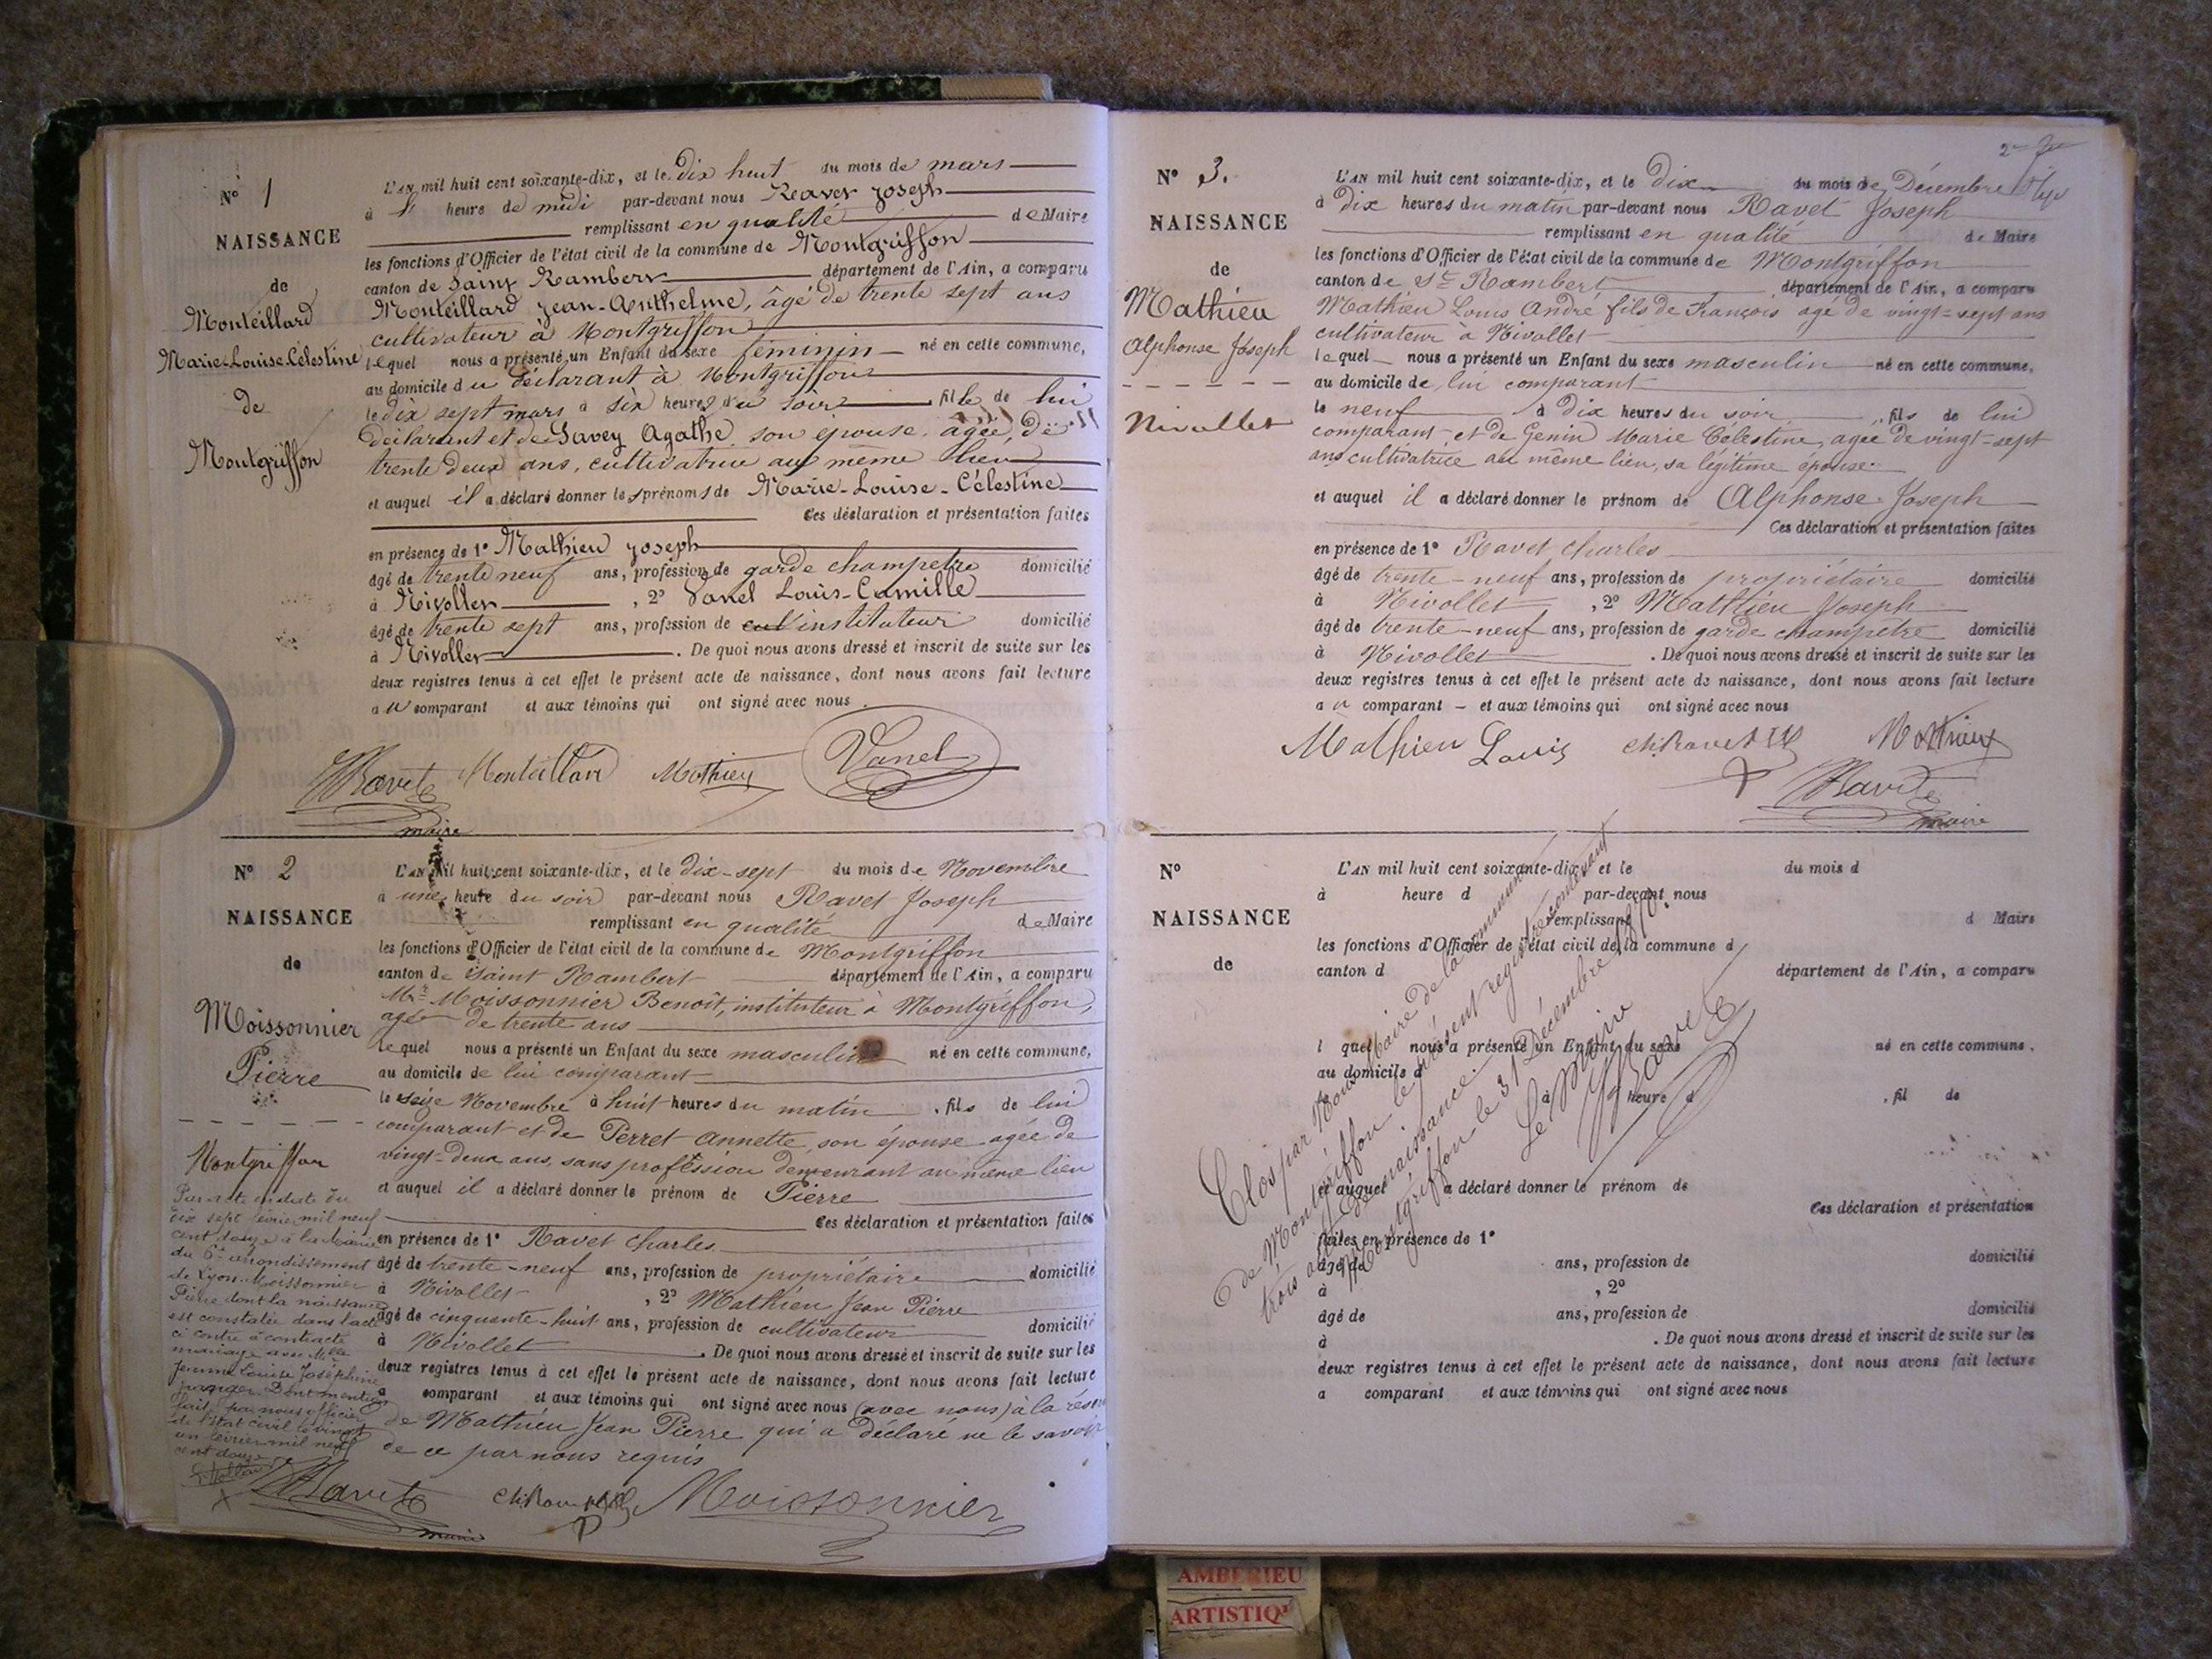 N° 1
NAISSANCE
de
Monteillard
Marie-Louise-Célestine
de
Montgriffon
L'AN mil huit cent soixante-dix, et le dix huit du mois de mars
à heure de midi par-devant nous Ravet Joseph
remplissant en qualité de Maire
les fonctions d'Officier de l'état civil de la commune de Montgriffon
canton de Saint Rambert département de l'Ain, a comparu
Monteillard Jean-Anthelme, âgé de trente sept ans
cultivateur à Montgriffon
lequel nous a présenté un Enfant du sexe féminin né en cette commune,
au domicile du déclarant à Montgriffon
le dix sept mars à six heures du soir fille de lui
déclarant et de Savey Agathe son épouse, agée, de
trente deux ans, cultivatrice au même lieu
et auquel il a déclaré donner les prénoms de Marie-Louise-Célestine
Ces déclaration et présentation faites
en présence de 1° Mathieu Joseph
âgé de trente neuf ans, profession de garde champetre domicilié
à Nivollet , 2° Vanel Louis-Camille
âgé de trente sept ans, profession de cul instituteur domicilié
à Nivollet . De quoi nous avons dressé et inscrit de suite sur les
deux registres tenus à cet effet le présent acte de naissance, dont nous avons fait lecture
au comparant et aux témoins qui ont signé avec nous
Ravet Monteillard Mathieu Vanel
maire
N° 2
NAISSANCE
de
Moissonnier
Pierre
Montgriffon
L'AN mil huit cent soixante-dix, et le dix-sept du mois de Novembre
à une heure du soir par-devant nous Ravet Joseph
remplissant en qualité de Maire
les fonctions d'Officier de l'état civil de la commune de Montgriffon
canton de Saint Rambert département de l'Ain, a comparu
Mr Moissonnier Benoît, instituteur à Montgriffon,
agé de trente ans
lequel nous a présenté un Enfant du sexe masculin né en cette commune,
au domicile de lui comparant
le seize Novembre à huit heures du matin , fils de lui
comparant et de Perret Annette, son épouse agée de
vingt-deux ans, sans profession demeurant au même lieu
et auquel il a déclaré donner le prénom de Pierre
Ces déclaration et présentation faites
en présence de 1° Ravet Charles
âgé de trente-neuf ans, profession de propriétaire domicilié
à Nivollet , 2° Mathieu Jean Pierre
âgé de cinquante-huit ans, profession de cultivateur domicilié
à Nivollet . De quoi nous avons dressé et inscrit de suite sur les
deux registres tenus à cet effet le présent acte de naissance, dont nous avons fait lecture
a comparant et aux témoins qui ont signé avec nous (avec nous) à la
de Mathieu Jean Pierre qui a déclaré ne le savoir
de ce par nous requis
Ravet Ch. Ravet Moissonnier
maire
Par acte en date du
dix sept février mil neuf
cent douze à la Mairie
du 6e arrondissement
de Lyon Moissonnier
Pierre dont la naissance
est constatée dans l'acte
ci contre a contracté
mariage avec Mlle
Jeanne Louise Joséphine
Dont mention
fait par nous officier
de l'état civil le vingt
un février mil neuf
cent douze
N° 3.
NAISSANCE
de
Mathieu
Alphonse Joseph
Nivollet
L'AN mil huit cent soixante-dix, et le dix du mois de Décembre
à dix heures du matin par-devant nous Ravet Joseph
remplissant en qualité de Maire
les fonctions d'Officier de l'état civil de la commune de Montgriffon
canton de St Rambert département de l'Ain, a comparu
Mathieu Louis André fils de François agé de vingt-sept ans
cultivateur à Nivollet
lequel nous a présenté un Enfant du sexe masculin né en cette commune,
au domicile de lui comparant
le neuf à dix heures du soir , fils de lui
comparant et de Genin Marie Célestine, agée de vingt-sept
ans cultivatrice au même lieu, sa légitime épouse.
et auquel il a déclaré donner le prénom de Alphonse-Joseph
Ces déclaration et présentation faites
en présence de 1° Ravet Charles
âgé de trente-neuf ans, profession de propriétaire domicilié
à Nivollet , 2° Mathieu Joseph
âgé de trente-neuf ans, profession de garde champêtre domicilié
à Nivollet . De quoi nous avons dressé et inscrit de suite sur les
deux registres tenus à cet effet le présent acte de naissance, dont nous avons fait lecture
au comparant et aux témoins qui ont signé avec nous
Mathieu Louis Ch. Ravet Mathieu
Ravet
maire
N°
NAISSANCE
de
L'AN mil huit cent soixante-dix, et le du mois d
à heure d par-devant nous
remplissant d Maire
les fonctions d'Officier de l'état civil de la commune d
canton d département de l'Ain, a comparu
l quel nous a présenté un Enfant du sexe né en cette commune,
au domicile d
à heure d , fil de
et auquel a déclaré donner le prénom de
Ces déclaration et présentation
faites en présence de 1°
âgé de ans, profession de domicilié
à , 2°
âgé de ans, profession de domicilié
à . De quoi nous avons dressé et inscrit de suite sur les
deux registres tenus à cet effet le présent acte de naissance, dont nous avons fait lecture
a comparant et aux témoins qui ont signé avec nous
Clos par Nous Maire de la commune
de Montgriffon le présent registre contenant
trois actes de naissance.
à Montgriffon le 31 Décembre 1870.
Le Maire
Ravet
AMBERIEU
ARTISTIQ